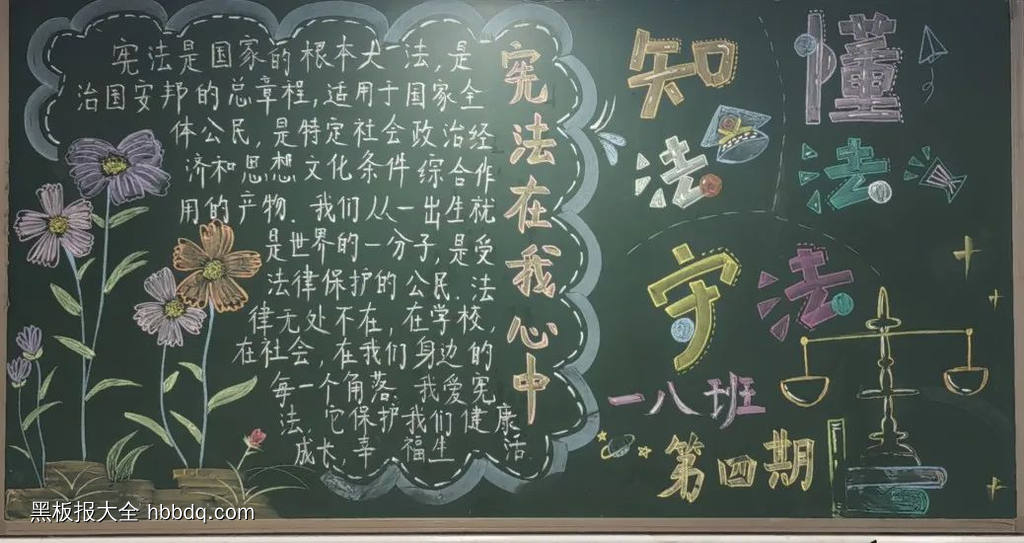 宪法是国家的根本大法,是
治国安邦的总章程,适用于国家全
体公民,是特定社会政治经
济和思想文化条件综合作
用的产物.我们从一出生就
是世界的一分子,是受
法律保护的公民.法
律无处不在,在学校,
在社会,在我们身边的
每一个角落.我爱宪
法.它保护我们健康
成长.幸福生活.
宪法在我心中
知法
懂法
守法
一八班
第四期
黑板报大全 hbbdq.com